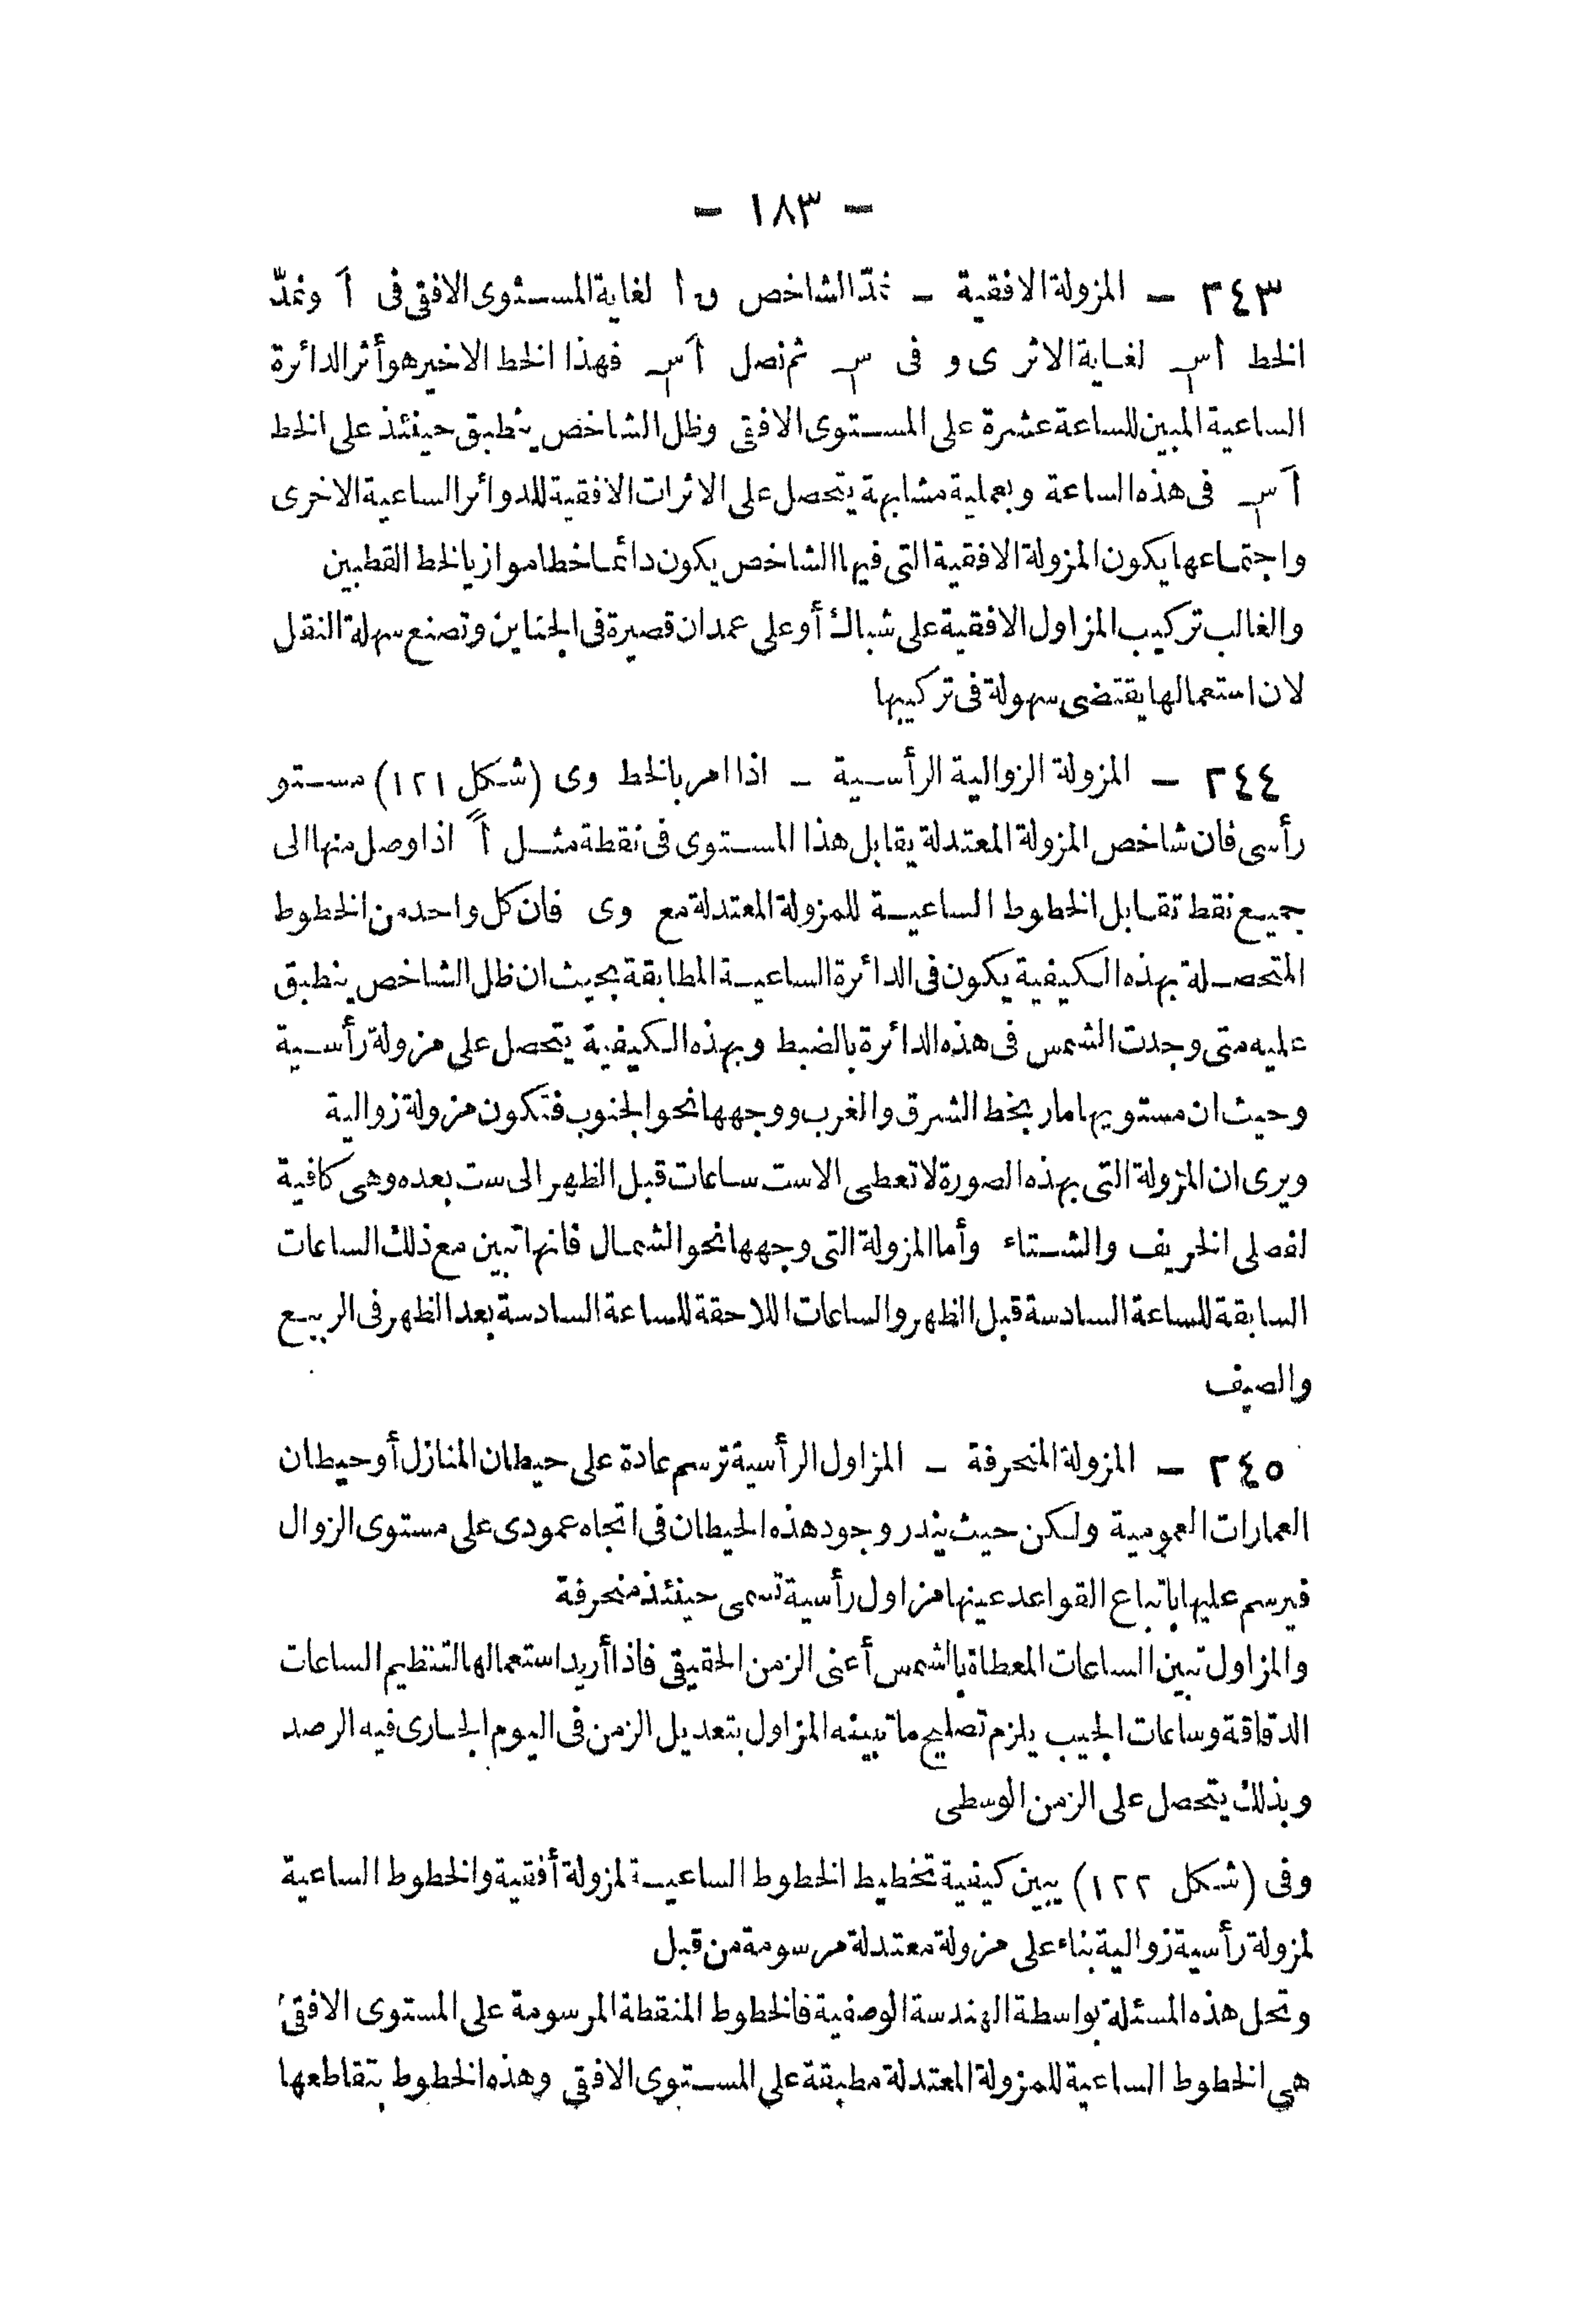 - ١٨٣ -
٢٤٣ - المزولة الافقية - نمدّ الشاخص ں أ لغاية المستوى الافقى فى أَ ونمدّ
الخط أس لغاية الاثر ى و فى س ثم نصل أَس فهذا الخط الاخير هو أثر الدائرة
الساعية المبين للساعة عشرة على المستوى الافقى وظل الشاخص ينطبق حينئذ على الخط
أَس فى هذه الساعة وبعملية مشابهة يتحصل على الاثرات الافقية للدوائر الساعية الاخرى
واجتماعها يكون المزولة الافقية التى فيها الشاخص يكون دائما خطا موازيا لخط القطبين
والغالب تركيب المزاول الافقية على شباك أو على عمدان قصيرة فى الجناين وتصنع سهلة النقل
لان استعمالها يقتضى سهولة فى تركيبها
٢٤٤ - المزولة الزوالية الرأسية - اذا امر بالخط وى (شكل ١٢١) مستو
رأسى فان شاخص المزولة المعتدلة يقابل هذا المستوى فى نقطة مثل أً اذا وصل منها الى
جميع نقط تقابل الخطوط الساعية للمزولة المعتدلة مع وى فان كل واحد من الخطوط
المتحصلة بهذه الكيفية يكون فى الدائرة الساعية المطابقة بحيث ان ظل الشاخص ينطبق
عليه متى وجدت الشمس فى هذه الدائرة بالضبط وبهذه الكيفية يتحصل على مزولة رأسية
وحيث ان مستويها مار بخط الشرق والغرب ووجهها نحو الجنوب فتكون مزولة زوالية
ويرى ان المزولة التى بهذه الصورة لا تعطى الا ست ساعات قبل الظهر الى ست بعده وهى كافية
لفصلى الخريف والشتاء وأما المزولة التى وجهها نحو الشمال فانها تبين مع ذلك الساعات
السابقة للساعة السادسة قبل الظهر والساعات اللاحقة للساعة السادسة بعد الظهر فى الربيع
والصيف
٢٤٥ - المزولة المنحرفة - المزاول الرأسية ترسم عادة على حيطان المنازل أو حيطان
العمارات العمومية ولكن حيث يندر وجود هذه الحيطان فى اتجاه عمودى على مستوى الزوال
فيرسم عليها باتباع القواعد عينها مزاول رأسية تسمى حينئذ منحرفة
والمزاول تبين الساعات المعطاة بالشمس أعنى الزمن الحقيقى فاذا أريد استعمالها لتنظيم الساعات
الدقاقة وساعات الجيب يلزم تصليح ما تبينه المزاول بتعديل الزمن فى اليوم الجارى فيه الرصد
وبذلك يتحصل على الزمن الوسطى
وفى (شكل ١٢٢) يبين كيفية تخطيط الخطوط الساعية لمزولة أفقية والخطوط الساعية
لمزولة رأسية زوالية بناء على مزولة معتدلة مرسومة من قبل
وتحل هذه المسئلة بواسطة الهندسة الوصفية فالخطوط المنقطة المرسومة على المستوى الافقى
هى الخطوط الساعية للمزولة المعتدلة مطبقة على المستوى الافقى وهذه الخطوط بتقاطعها